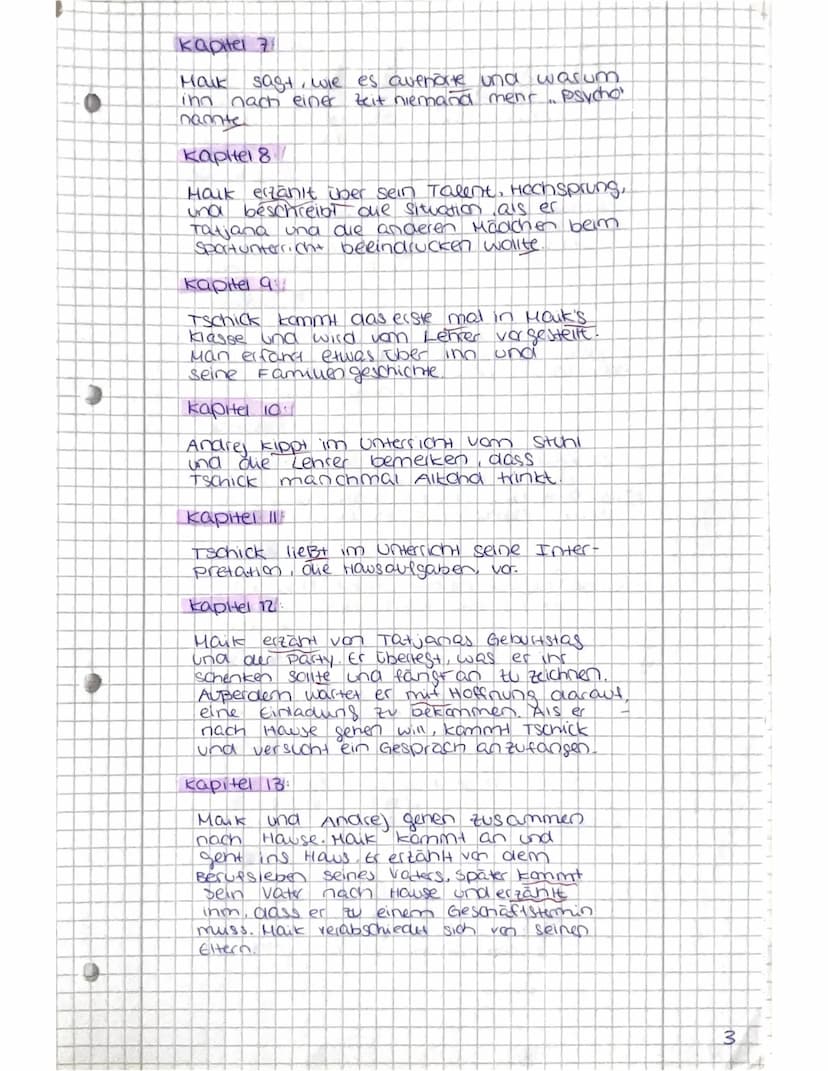 Kapitel 7:
Maik sagt, wie es aufhörte und warum
ihn nach einer Zeit niemand mehr „Psycho“
nannte.
Kapitel 8:
Maik erzählt über sein Talent, Hochsprung,
und beschreibt die Situation, als er
Tatjana und die anderen Mädchen beim
Sportunterricht beeindrucken wollte.
Kapitel 9:
Tschick kommt das erste mal in Maik's
Klasse und wird vom Lehrer vorgestellt.
Man erfährt etwas über ihn und
seine Familiengeschichte.
Kapitel 10:
Andrej kippt im Unterricht vom Stuhl
und die Lehrer bemerken, dass
Tschick manchmal Alkohol trinkt.
Kapitel 11:
Tschick ließt im Unterricht seine Inter-
pretation, die Hausaufgaben, vor.
Kapitel 12:
Maik erzählt von Tatjanas Geburtstag
und der Party. Er überlegt, was er ihr
schenken sollte und fängt an zu zeichnen.
Außerdem wartet er mit Hoffnung darauf,
eine Einladung zu bekommen. Als er
nach Hause gehen will, kommt Tschick
und versucht ein Gespräch anzufangen.
Kapitel 13:
Maik und Andrej gehen zusammen
nach Hause. Maik kommt an und
geht ins Haus. Er erzählt von dem
Berufsleben seines Vaters. Später kommt
sein Vater nach Hause und erzählt
ihm, dass er zu einem Geschäftstermin
muss. Maik verabschiedet sich von seinen
Eltern.
3